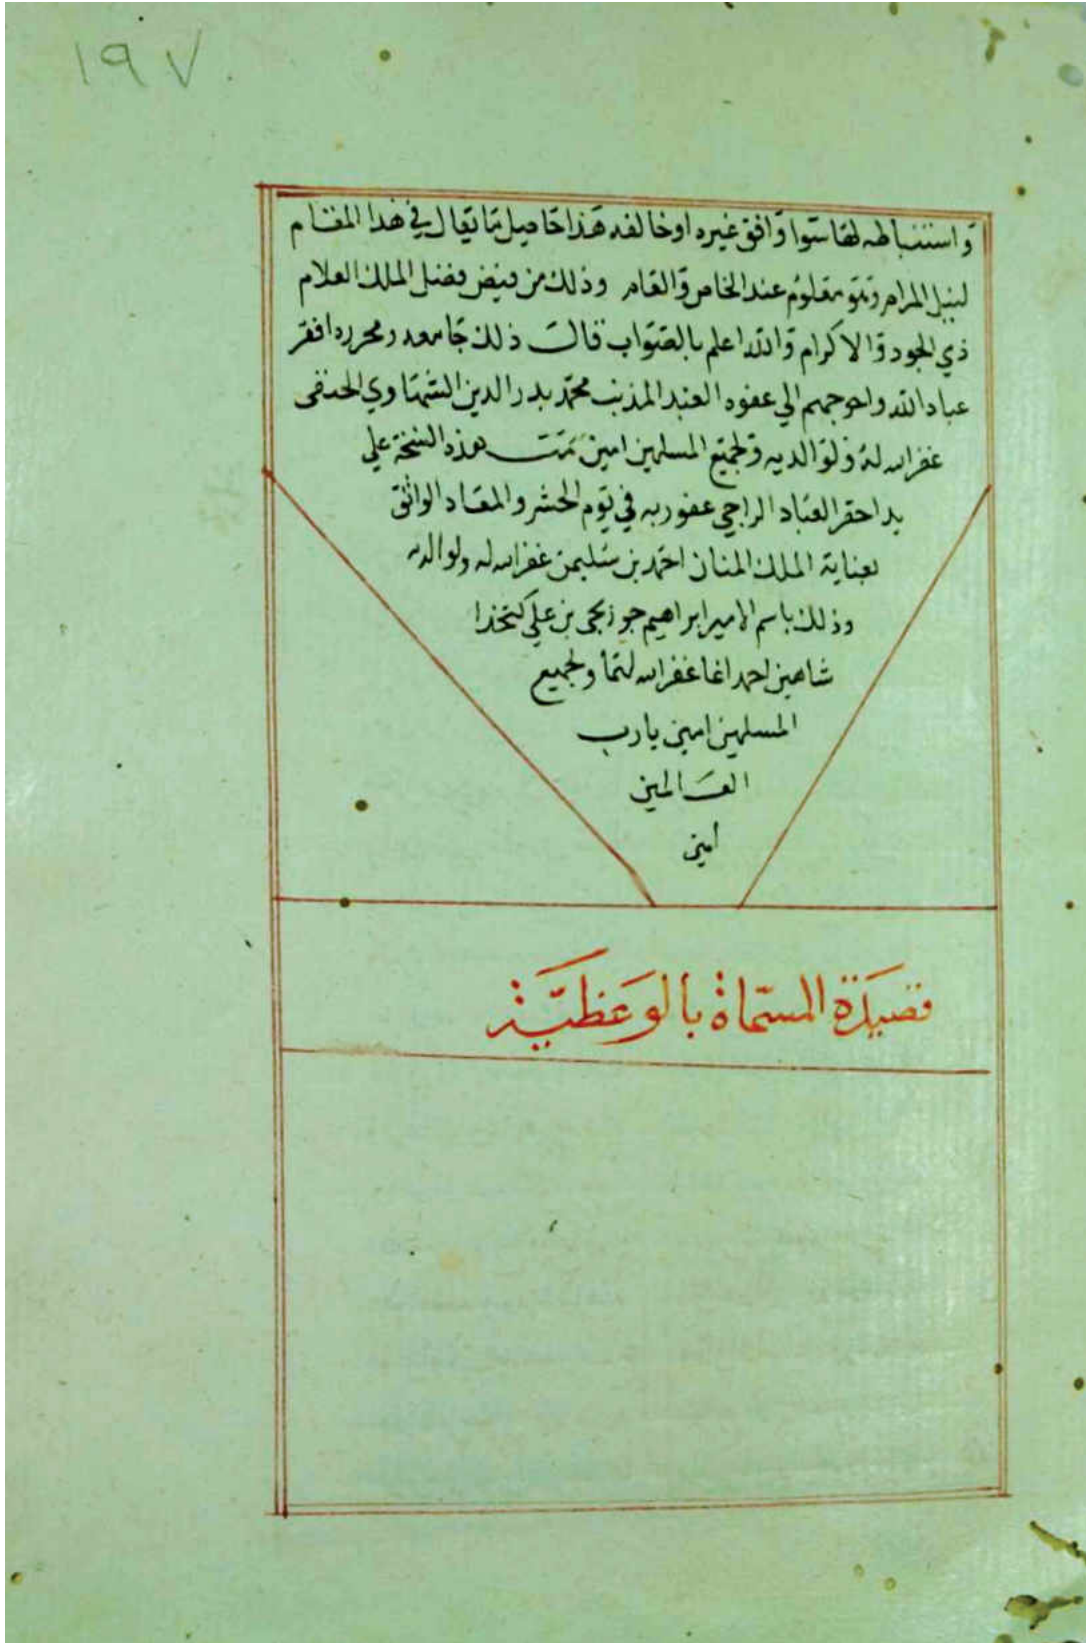 ١٩٧
واستنباطه لها سوا وافق غيره او خالفه هذا حاصل ما يقال في هذا المقام
لنيل المرام وهو معلوم عند الخاص والعام وذلك من فيض فضل الملك العلام
ذي الجود والاكرام والله اعلم بالصواب قال ذلك جامعه ومحرره افقر
عباد الله واحوجهم الي عفوه العبد المذنب محمد بدر الدين الشهاوي الحنفى
غفر الله له ولوالديه ولجميع المسلمين امين تمت هذه النسخة علي
يد احقر العباد الراجي عفو ربه في يوم الحشر والمعاد الواثق
بعناية الملك المنان احمد بن سليمن غفر الله له ولوالديه
وذلك باسم الامير ابراهيم جوربجى بن علي كتخدا
شاهين احمد اغا غفر الله لهما ولجميع
المسلمين امين يارب
العالمين
امين
قصيدة المسماة بالوعظية